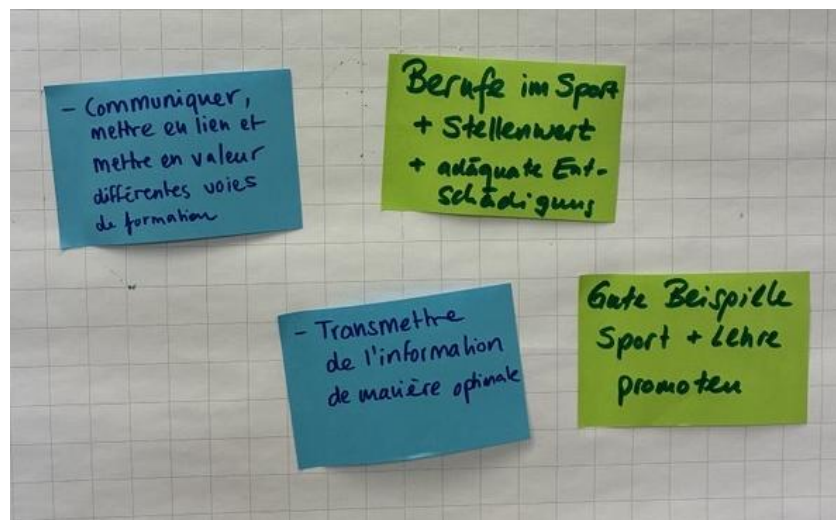 - Communiquer,
mettre en lien et
mettre en valeur
différentes voies
de formation
Berufe im Sport
+ Stellenwert
+ adäquate Ent-
schädigung
- Transmettre
de l'information
de manière optimale
Gute Beispielle
Sport + Lehre
promoten